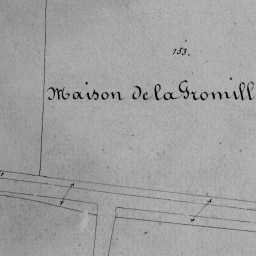 153.
Maison de la Gromill